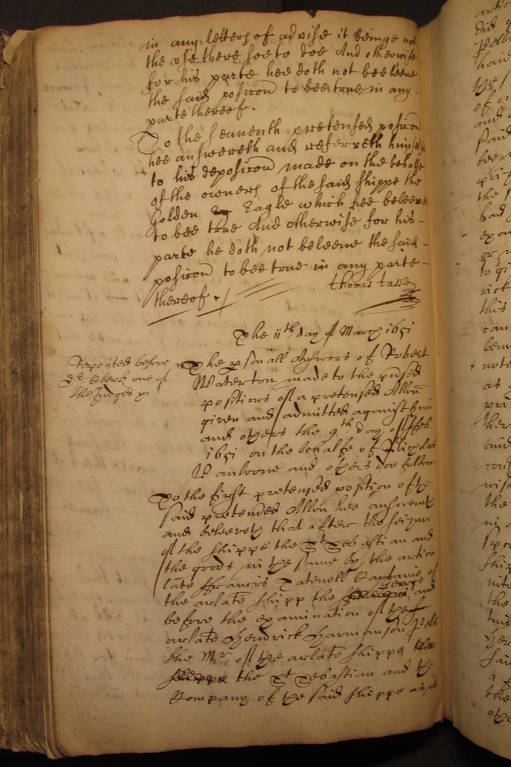 in any letters of advise it beinge not
the use there soe to doe And otherwise
for his parte hee doth not beeleeve
the said posicon to bee true in any
parte thereof.
To the seaventh pretended posicon
hee answereth and referreth himselfe
to his deposicon made on the behalfe
of the owners of the said shippe the
Golden Eagle which hee beleeveth
to bee true And otherwise for his
parte he doth not beleeve the said
posicon to bee true in any parte
thereof.
Thomas
The 11th day of March 1651
Repeated before
Dr Clerk one of
the Judges
The psonall Answeres of Robert
Waterton made to the
positions of a pretended Allon
given and admitted against him
and others the 9th day of Feb.
1651 on the behalfe of
and others doe follow
To the first pretended position of the
said pretended Allon hee answereth
and beleeveth that after the seizure
of the shippe the St Sebastian and
the goods in the same by the artico
late Francis Captaine of
the arlate shipp the George and
before the examination of the
arlate Hendrick Harmenson
the Mr of the arlate shippe
the St Sebastian and the
Company of the said shippe